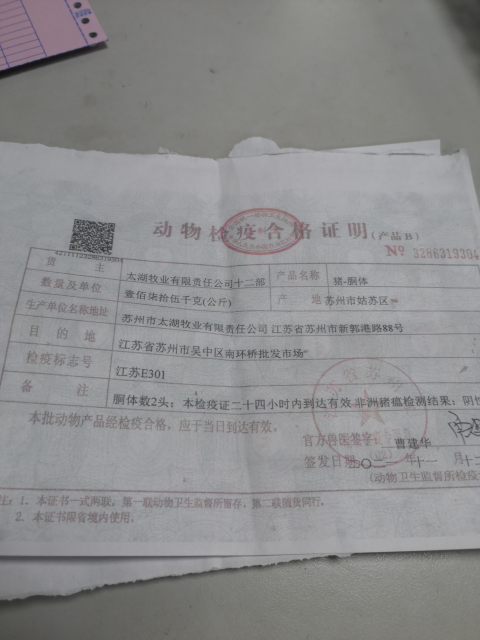 动物检疫合格证明(产品B)
№ 3286319304
货主 太湖牧业有限责任公司十二部 产品名称 猪-胴体
数量及单位 壹佰柒拾伍千克(公斤) 产地 苏州市姑苏区
生产单位名称地址 苏州市太湖牧业有限责任公司 江苏省苏州市新郭港路88号
目的地 江苏省苏州市吴中区南环桥批发市场
检疫标志号 江苏E301
备注 胴体数2头; 本检疫证二十四小时内到达有效 非洲猪瘟检测结果: 阴性
本批动物产品经检疫合格, 应于当日到达有效。
官方兽医签字: 曹建华
签发日期: 二〇二一年十一月十二
(动物卫生监督所检疫
注: 1. 本证书一式两联, 第一联动物卫生监督所留存, 第二联随货同行。
2. 本证书限省境内使用。